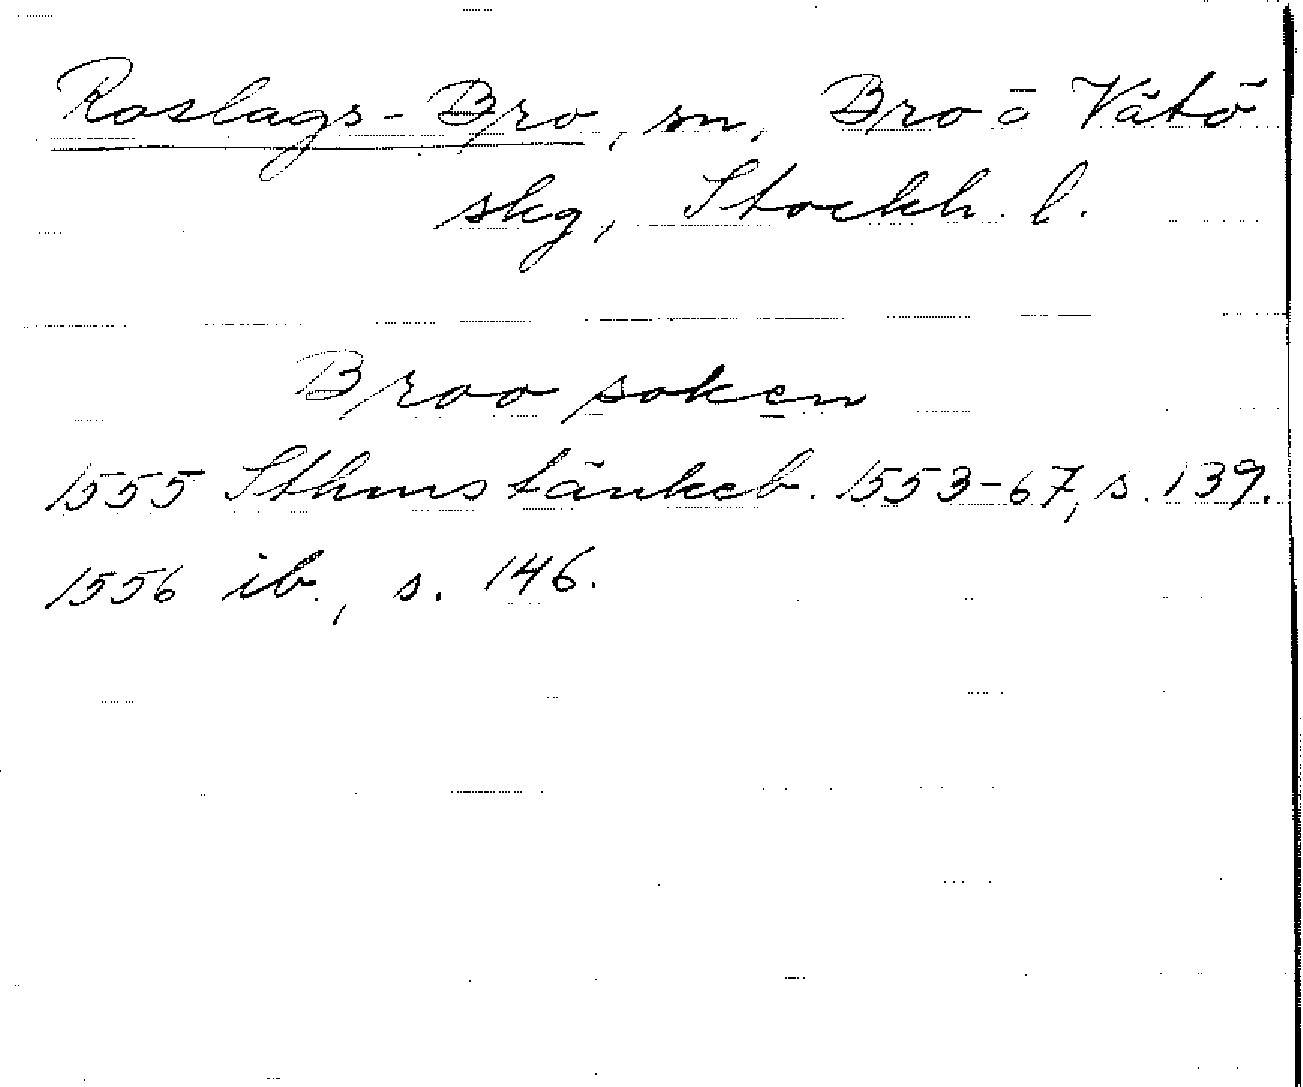 Roslags-Bro, sn, Bro o Vätö
skg, Stockh. l.
Broo soken
1555 Sthms tänkeb. 1553-67, s. 139.
1556 ib., s. 146.